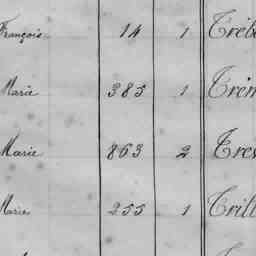 François 14 1 Tréb
Marie 385 1 Trém
Marie 863 2 Tres
Marie 255 1 Trill